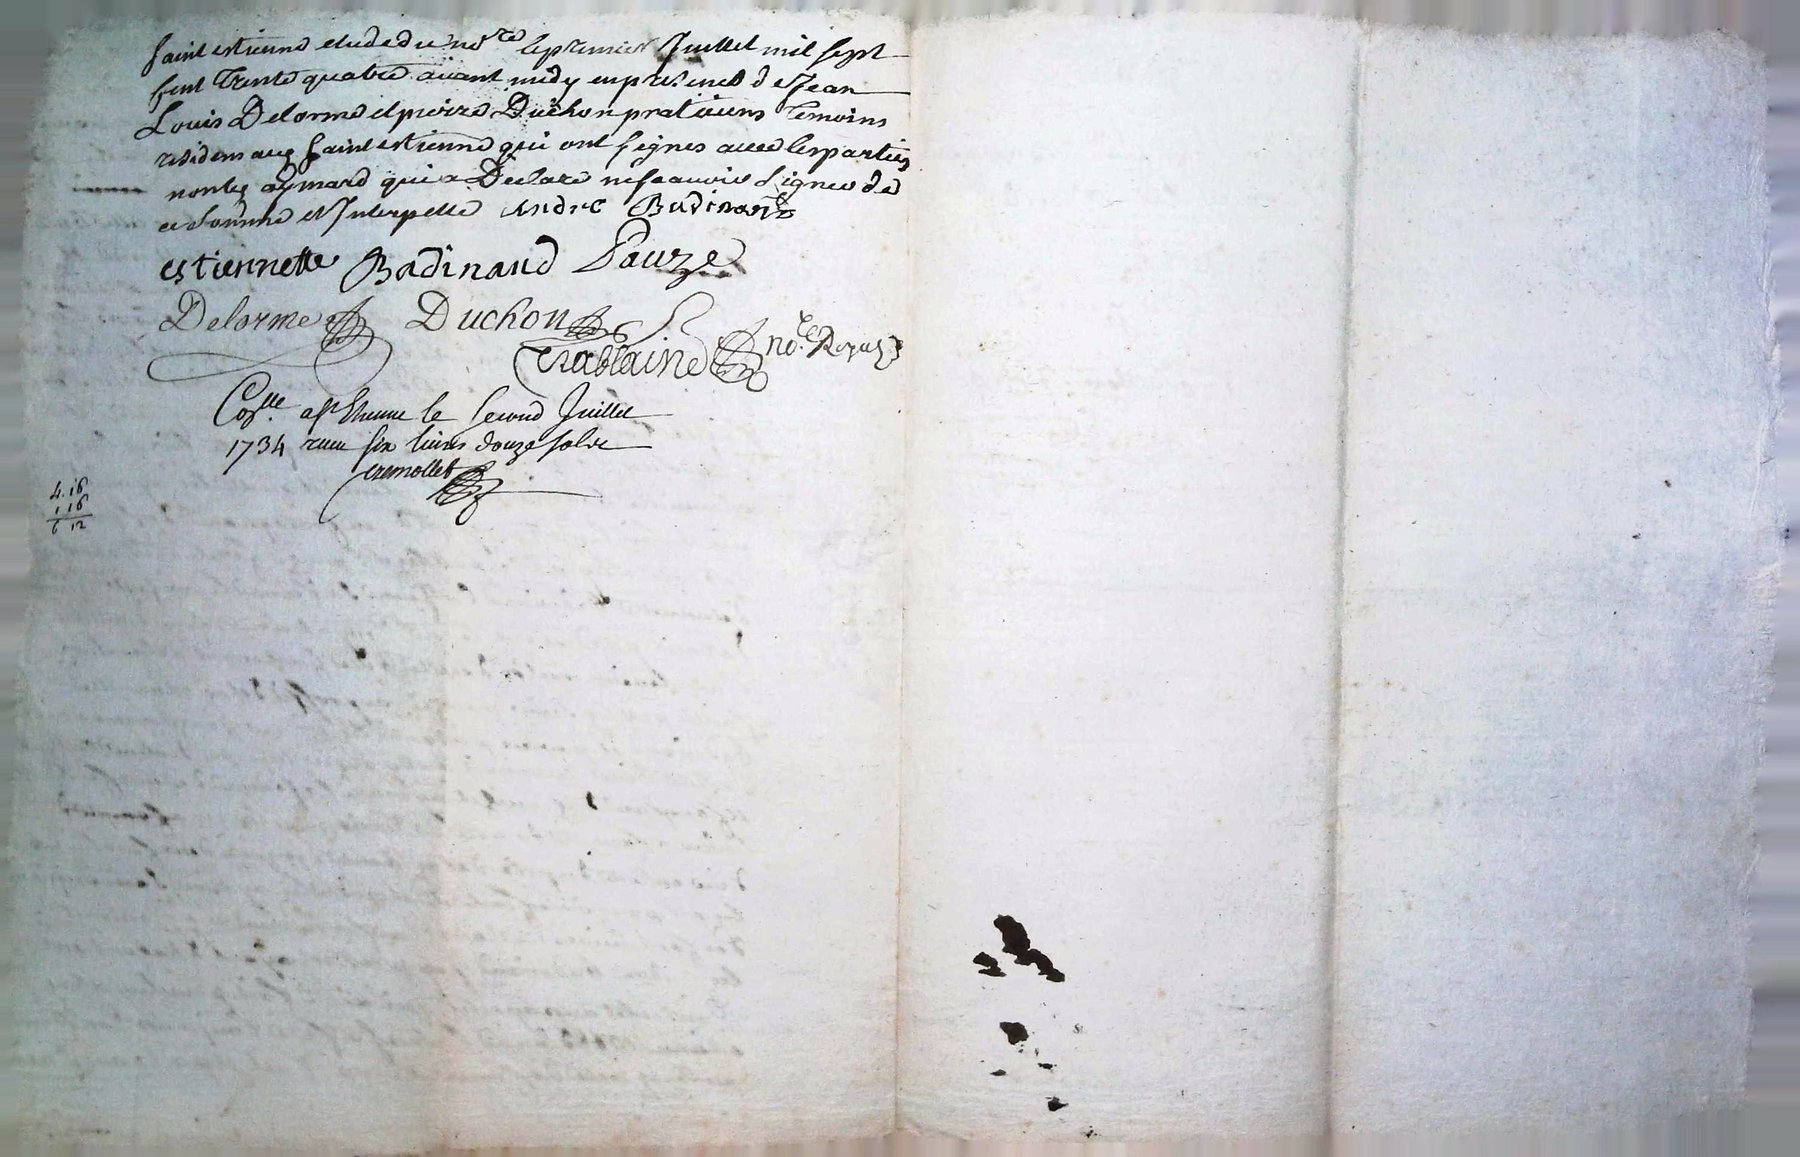 saint estienne etude du no.re le premier Juillet mil sept
cent trente quatre avant midy en presence de Jean
Louis Delorme et pierre Duchon praticiens temoins
residens aud saint estienne qui ont signés avec les parties
non led aymard qui a Declaré ne scavoir signer de
ce sommé et Interpellé andre Badinand
estiennette Badinand Pauze
Delorme Duchon
trablaine no.re Royal
Con.lle a St Etienne le second Juillet
1734 receu six livres douze sols
cremollet
4. 16
1 16
6 12